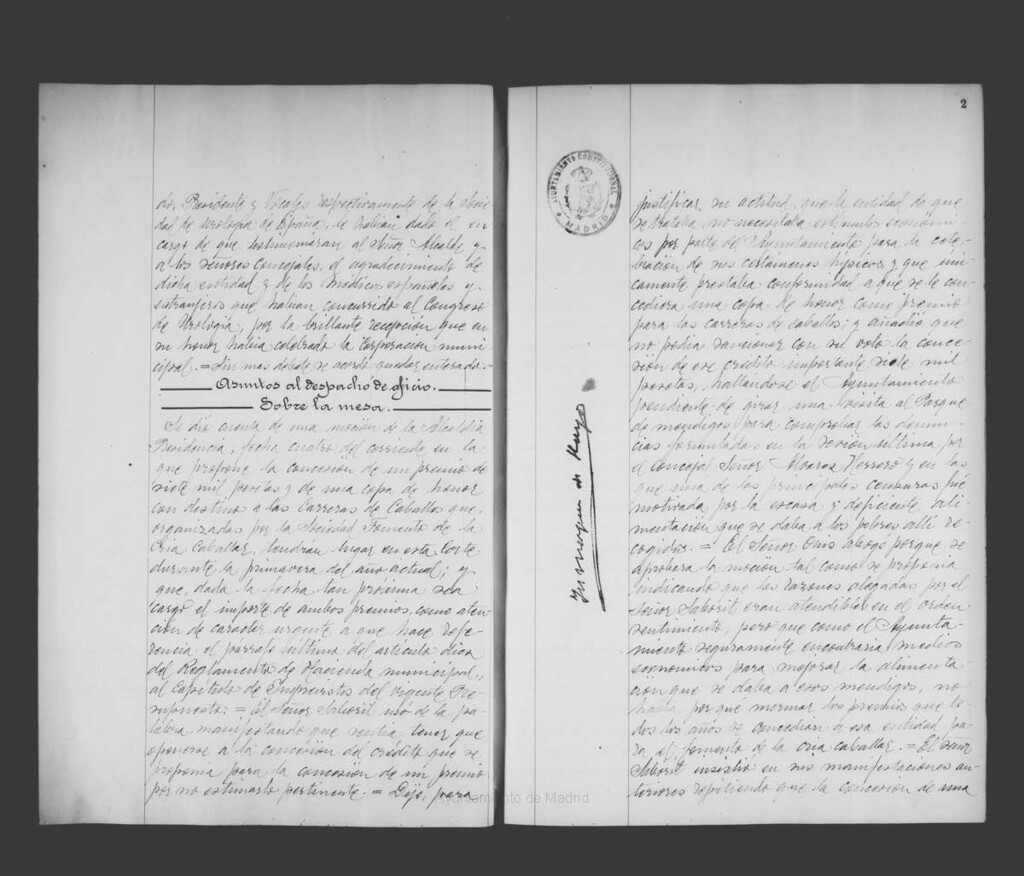 do, Presidente y Vocales respectivamente de la Socie-
dad de Urología de España, le habían dado el en-
cargo de que testimoniaran al Señor Alcalde y
a los señores Concejales, el agradecimiento de
dicha entidad y de los Médicos españoles y
extranjeros que habían concurrido al Congreso
de Urología, por la brillante recepción que en
su honor había celebrado la Corporación muni-
cipal. = Sin mas debate se acordó quedar enterado.
Asuntos al despacho de oficio.
Sobre la mesa.
Se dió cuenta de una moción de la Alcaldía
Presidencia, fecha cuatro del corriente en la
que propone la concesión de un premio de
siete mil pesetas y de una copa de honor
con destino a las Carreras de Caballos que,
organizadas por la Sociedad Fomento de la
Cria Caballar, tendrán lugar en esta Corte
durante la primavera del año actual; y
que, dada la fecha tan próxima sea
cargo el importe de ambos premios, como aten-
ción de carácter urgente a que hace refe-
rencia el párrafo último del artículo diez
del Reglamento de Hacienda municipal,
al Capítulo de Imprevistos del vigente Pre-
supuesto. = El Señor Saborit usó de la pa-
labra manifestando que sentía tener que
oponerse a la concesión del crédito que se
proponía para la concesión de un premio
por no estimarlo pertinente. = Dijo, para
Ayuntamiento de Madrid
2
AYUNTAMIENTO CONSTITUCIONAL
MADRID
justificar su actitud, que la entidad de que
se trataba, no necesitaba estímulos económi-
cos por parte del Ayuntamiento para la cele-
bración de sus certámenes hípicos y que úni-
camente prestaba conformidad a que se le con-
cediera una copa de honor como premio
para las carreras de caballos; y añadió que
no podía sancionar con su voto la conce-
sión de ese crédito importante siete mil
pesetas, hallándose el Ayuntamiento
pendiente de girar una visita al Parque
de mendigos para comprobar las denun-
cias formuladas en la sesión última por
el concejal Señor Alvarez Herrero y en las
que una de las principales censuras fué
motivada por la escasa y deficiente ali-
mentación que se daba a los pobres allí re-
cogidos. = El Señor abogó porque se
aprobara la moción tal como se proponía
indicando que las razones alegadas por el
Señor Saborit eran atendibles en el orden
sentimiento, pero que como el Ayunta-
miento seguramente encontraría medios
económicos para mejorar la alimenta-
ción que se daba a esos mendigos, no
había por qué mermar los premios que to-
dos los años se concedían a esa entidad pa-
ra el fomento de la cria caballar. = El señor
Saborit insistió en sus manifestaciones an-
teriores repitiendo que la concesión de una